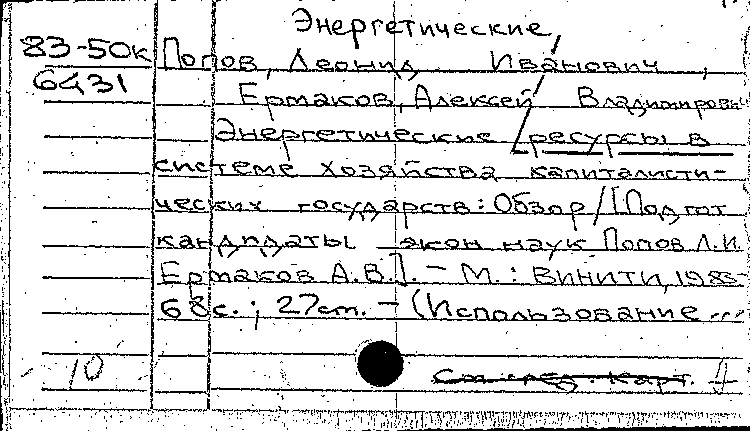 Энергетические,
83-50к Попов, Леонид Иванович,
6431 Ермаков, Алексей Владимирович
Энергетические ресурсы в
системе хозяйства капиталисти-
ческих государств: Обзор/[Подгот
кандидаты экон наук Попов Л.И.
Ермаков А.В.]. - М.: ВИНИТИ, 1983-
68с.; 27см. - (Использование ...
10 См. след. карт.